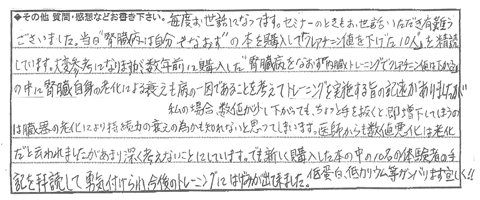 ◆その他 質問・感想などお書き下さい。 毎度お世話になってます。セミナーのときもお世話いただき有難う
ございました。当日"腎臓病は自分でなおす"の本を購入し"クレアチニン値を下げた10人"を精読
しています。大変参考になりますが数年前に購入した"腎臓病をなおす内臓トレーニングでクレアチニン値下が
の中に腎臓自身の老化による衰えも病の一因であることを考えてトレーニングを実施する旨の記述がありましたが
私の場合、数値が少し下がっても、ちょっと手を抜くと、即増下してしまうの
は臓器の老化により持続力の衰えの為かも知れないと思ってしまいます。医師からも数値悪化は老化
だと云われましたがあまり深く考えないことにしています。でも新しく購入した本の中の10名の体験者の手
記を拝読して勇気付けられ、今後のトレーニングには力が出て来ました。低蛋白、低カリウム等ガンバリます宜しく!!